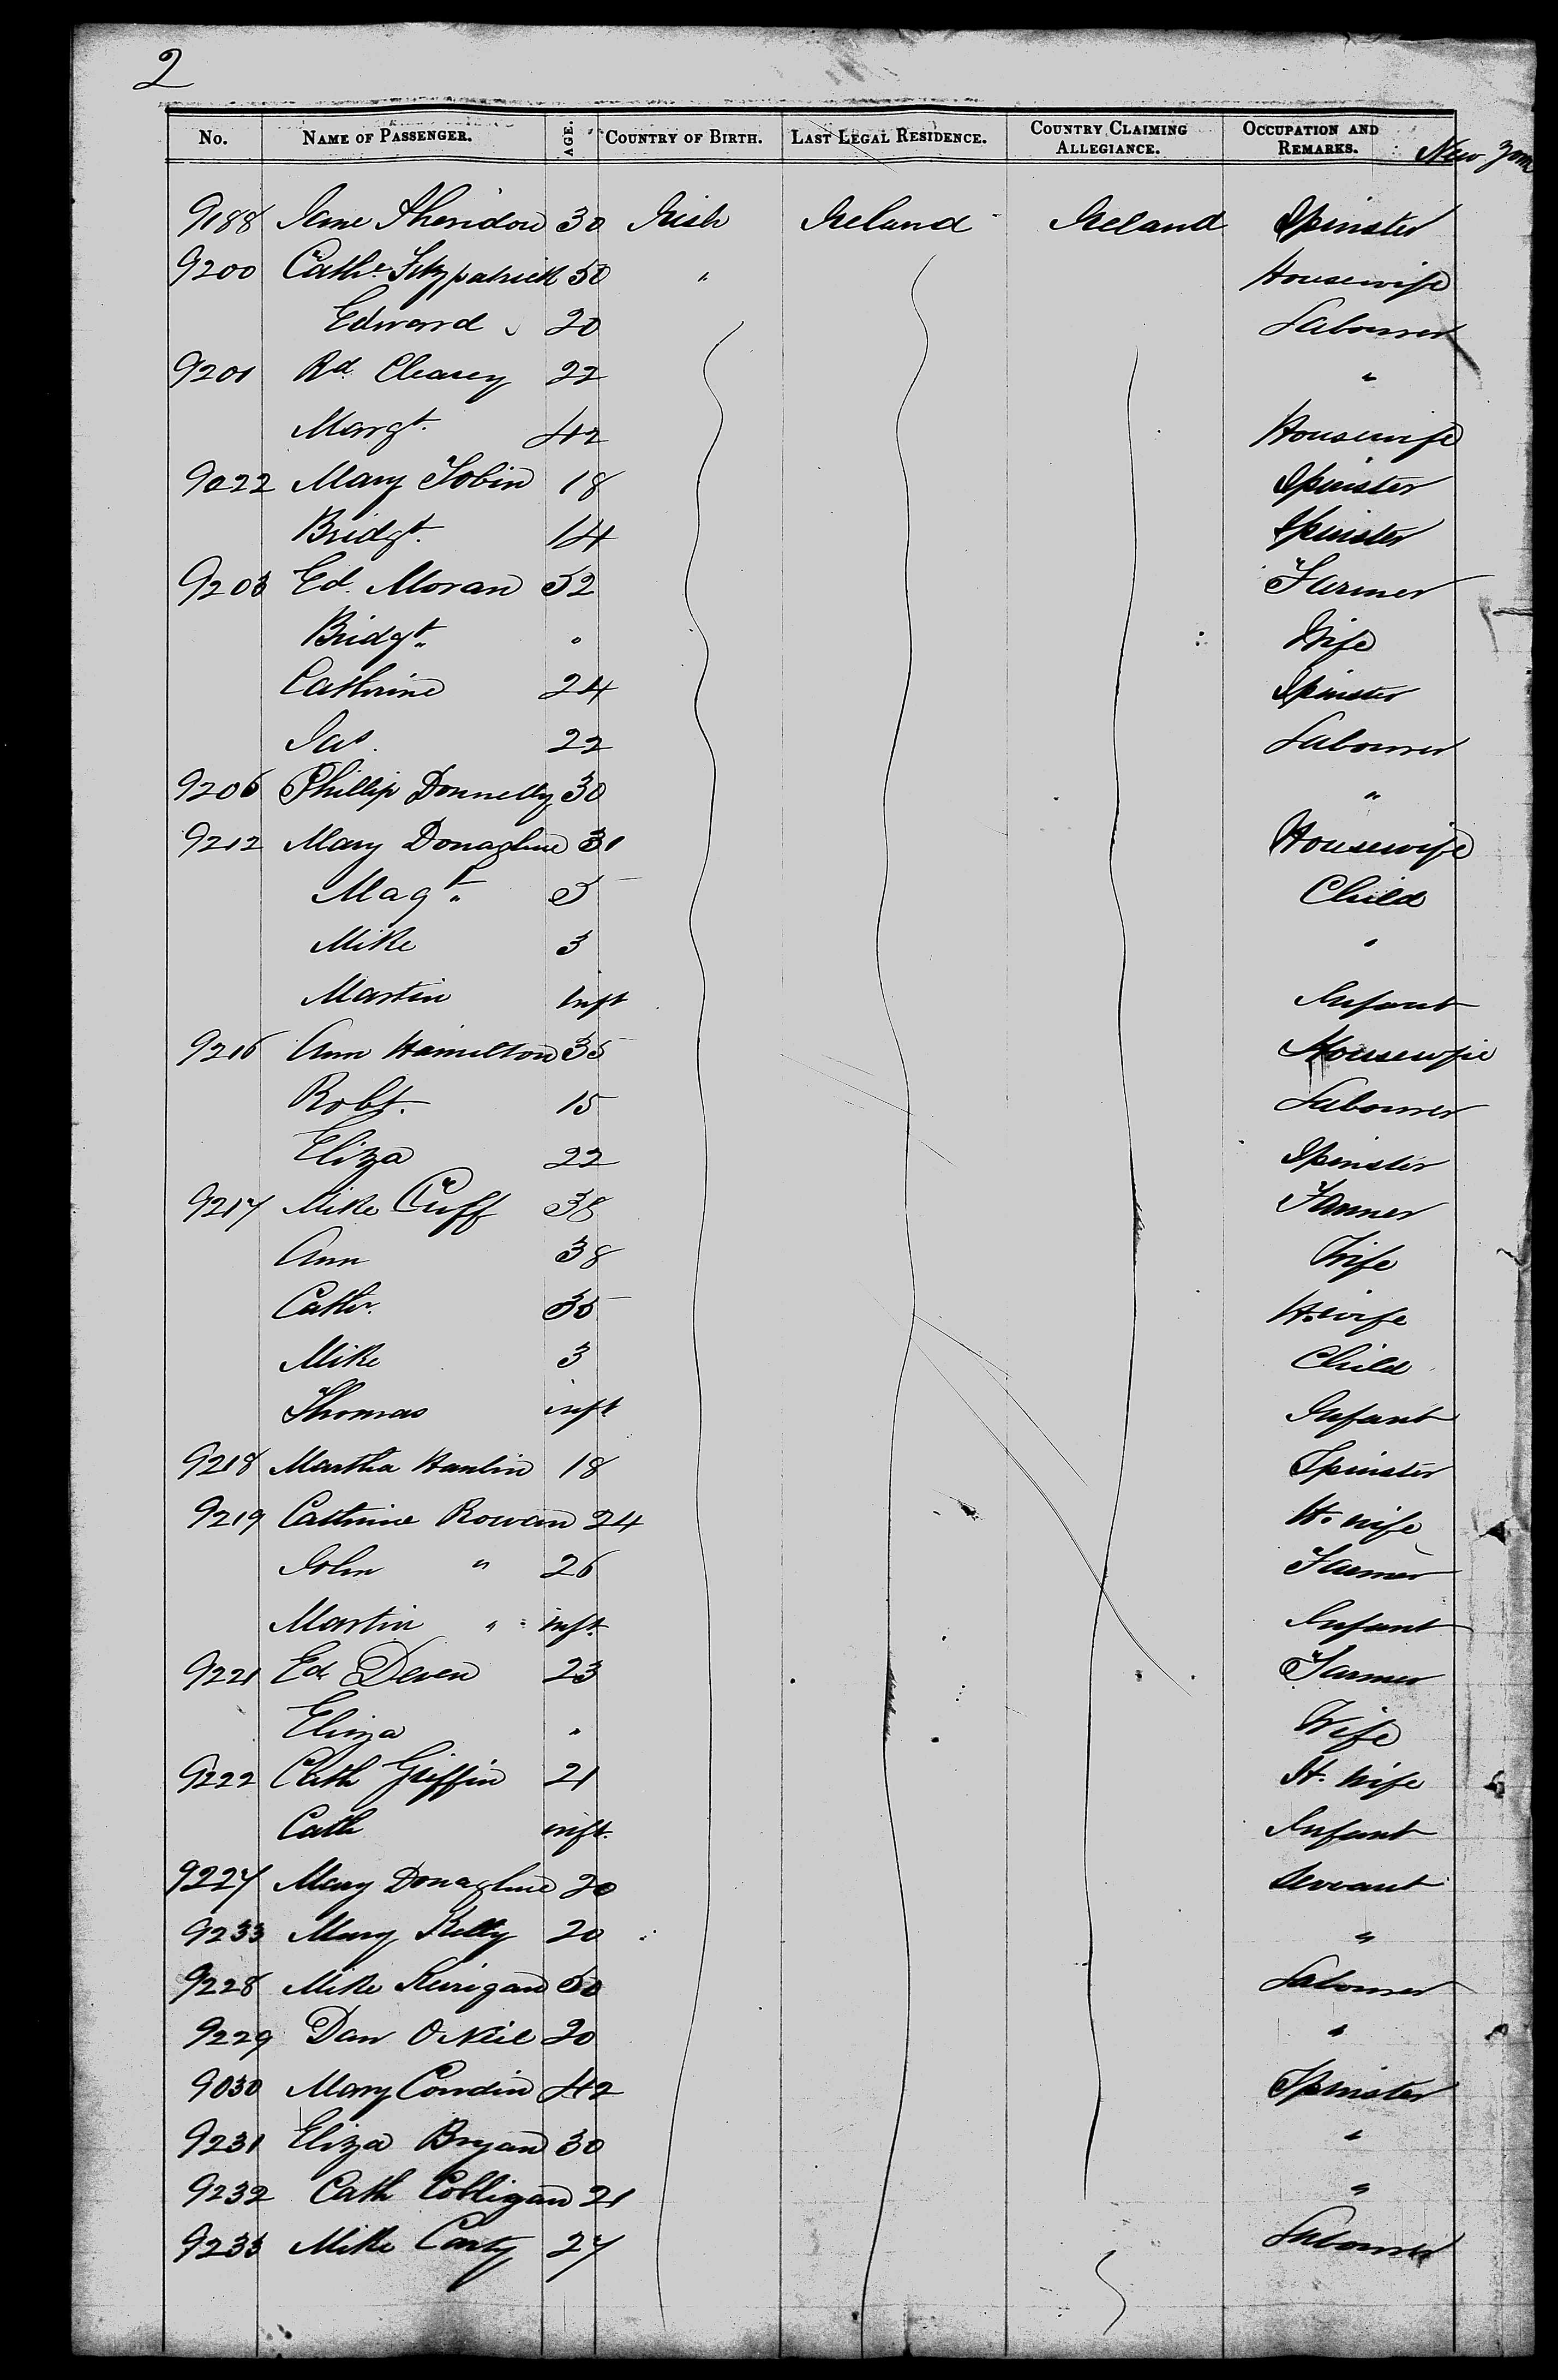 2
No. NAME OF PASSENGER. AGE. COUNTRY OF BIRTH. LAST LEGAL RESIDENCE. COUNTRY CLAIMING ALLEGIANCE. OCCUPATION AND REMARKS. New York
9188 Jane Sheridon 30 Irish Ireland Ireland Spinster
9200 Cathe. Fitzpatrick 50 " Housewife
Edward " 20 Labourer
9201 Rd. Clearey 22 "
Margt. 42 Housewife
9022 Mary Tobin 18 Spinster
Bridgt. 14 Spinster
9203 Ed. Moran 52 Farmer
Bridgt. " Wife
Cathrine 24 Spinster
Jas. 22 Labourer
9206 Phillip Donnelly 30 "
9212 Mary Donaghue 31 Housewife
Magt. 5 Child
Mike 3 "
Martin Inft Infant
9216 Ann Hamilton 35 Housewfie
Robt. 15 Labourer
Eliza 22 Spinster
9217 Mike Cuff 38 Farmer
Ann 38 Wife
Cathr. 35 H. wife
Mike 3 Child
Thomas inft Infant
9218 Martha Hanlin 18 Spinster
9219 Cathrine Rowan 24 H. wife
John " 26 Farmer
Martin " inft. Infant
9221 Ed. Deven 23 Farmer
Eliza " Wife
9222 Cath Griffin 21 H. Wife
Cath inft. Infant
9227 Mary Donaghue 20 Servant
9233 Mary Kelly 20 "
9228 Mike Kerrigan 50 Labourer
9229 Dan O Neil 20 "
9030 Mary Condin 42 Spinster
9231 Eliza Bryan 30 "
9232 Cath Colligan 21 "
9233 Mike Carty 27 Labourer